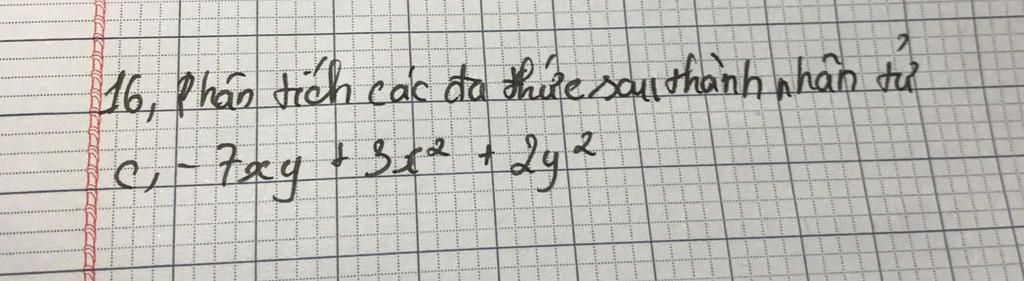 16, Phân tích các đa thức sau thành nhân tử
c, -7xy + 3x² + 2y²